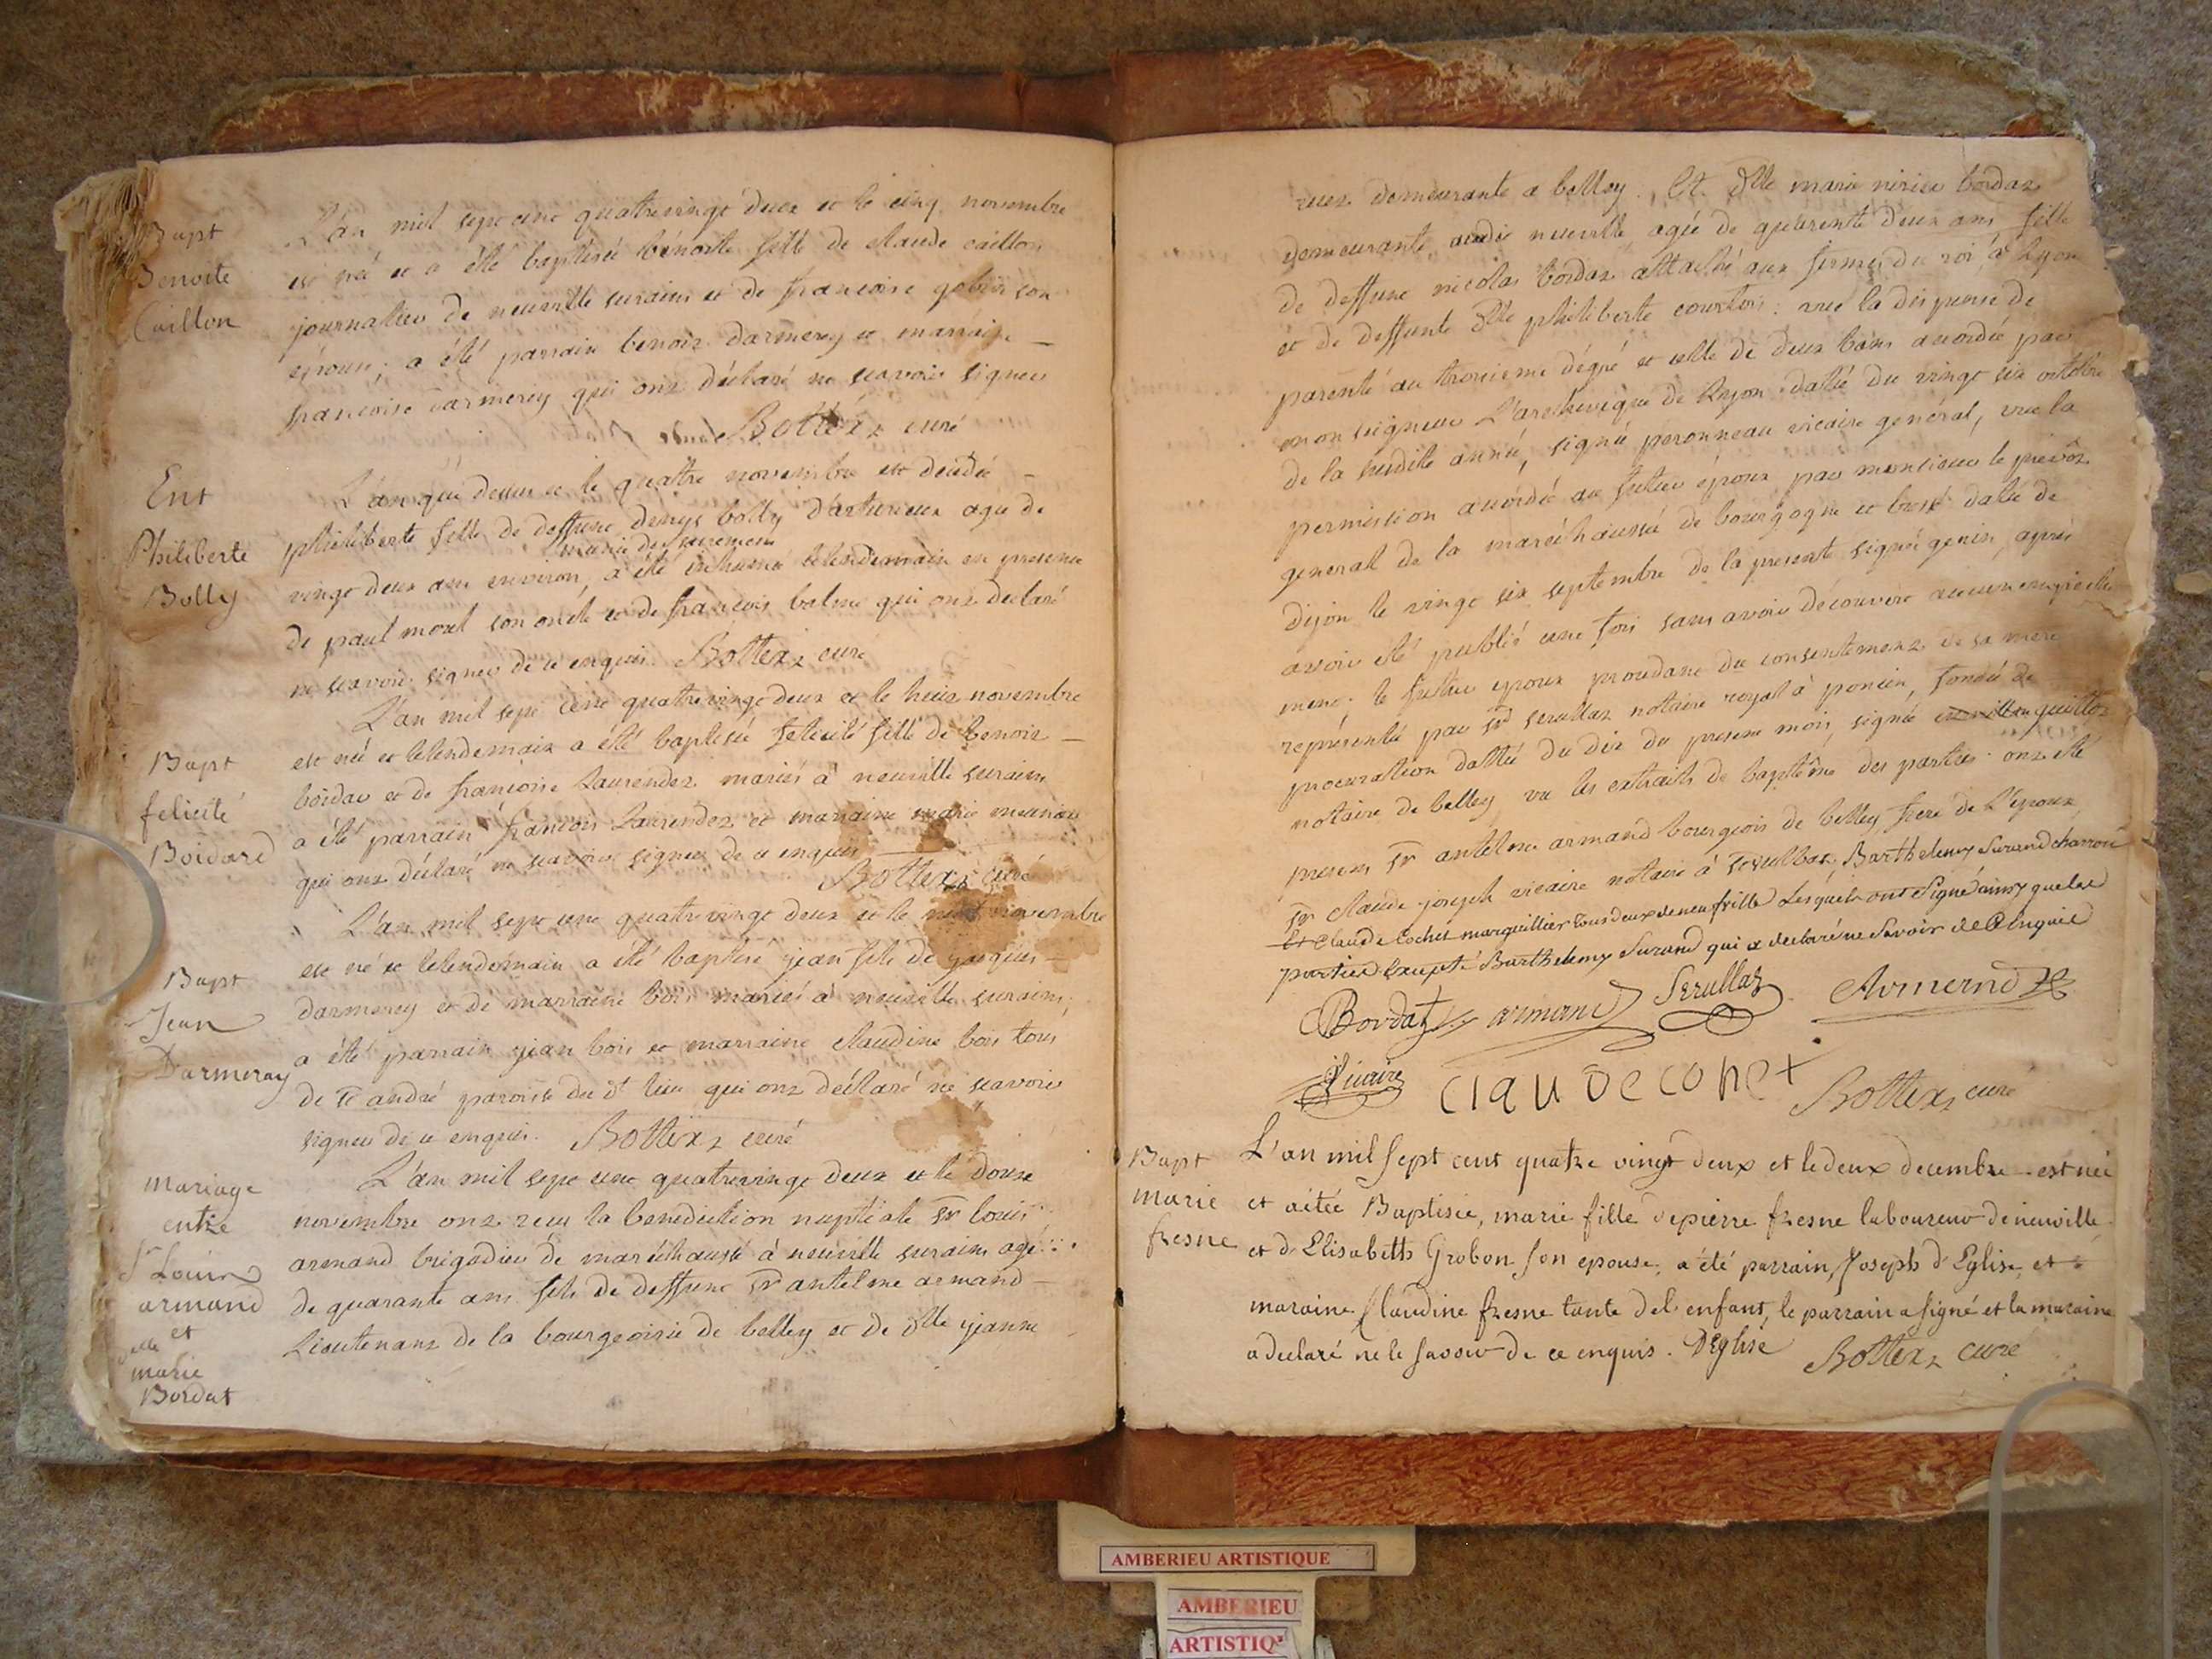 Bapt
Benoite
Caillon
L'an mil sept cent quatrevingt deux et le cinq novembre
est née et a été baptisée benoite fille de claude caillon
journalier de neuville surains et de francoise gobin son
épouse, a été parrain benoit darmerey et marraine
francoise darmerey qui ont déclaré ne scavoir signer
Bottex curé
Ent
Philiberte
Bolly
L'an que dessus et le quatre novembre est décédée
philiberte fille de deffunt denys bolly d'arturieux agée de
munie des sacremens
vingt deux ans environ, a été inhumée lelendemain en presence
de paul morel son oncle et de francois balme qui ont déclaré
ne scavoir signer de ce enquis. Bottex curé
Bapt
felicité
Boidard
L'an mil sept cent quatrevingt deux et le huit novembre
est née et lelendemain a été baptisée felicité fille de benoit
boidar et de francoise Laurendez mariés à neuville surains
a été parrain francois Laurendez et marraine marie
qui ont déclaré ne scavoir signer de ce enquis
Bottex curé
Bapt
Jean
Darmeray
L'an mil sept cent quatrevingt deux et le neuf novembre
est né et lelendemain a été baptisé jean fils de jacques
darmerey et de marraine bois mariés à neuville surains,
a été parrain jean bois et marraine claudine bois tous
de st andré paroisse du dt lieu qui ont déclaré ne scavoir
signer de ce enquis. Bottex curé
mariage
entre
Sr Louis
armand
et
delle
marie
Bordat
L'an mil sept cent quatrevingt deux et le douze
novembre ont reçu la benediction nuptiale Sr louis
armand brigadier de maréchaussé à neuville surains agé
de quarante ans fils de deffunt Sr antelme armand
Lieutenant de la bourgeoisie de belley et de dlle jeanne
demeurante a belley. Et dlle marie bordaz
demeurante audit neuville agée de quarente deux ans fille
de deffunt nicolas bordaz attaché aux fermes du roi à Lyon
et de deffunte dlle philiberte courtois: vue la dispense de
parenté au troisieme dégré et celle de deux bans accordée par
monseigneur L'archevêque de Lyon dattée du vingt six octobre
de la susdite année, signée peronneau vicaire général, vue la
permission accordée au futur époux par monsieur le prévôt
general de la maréchaussée de bourgogne et bresse datée de
dijon le vingt six septembre de la presente signée genin, après
avoir été publié une fois sans avoir découvert aucun empeche
ment. le futur epoux procedant du consentement de sa mere
représentée par Sr serullaz notaire royal à poncin, fondé de
procuration dattée du dix du present mois, signée guillot
notaire de belley, vu les extraits de baptême des parties. ont été
presens Sr antelme armand bourgeois de belley frere de L'époux,
Sr claude joseph vicaire notaire à Barthelemy Surand charron
et Claude Cochet marguillier tous deux de neufville Lesquels ont Signé ainsy que les
parties Excepté Barthelemy Surand qui a declaré ne Savoir de Ce Enquis
Bordat armand Serullaz Armand
Vicaire Claude cohet Bottex curé
Bapt
marie
fresne
L'an mil sept cent quatre vingt deux et le deux decembre est née
et aitée Baptisée, marie fille de pierre fresne laboureur de neuville
et d'Elisabeth Grobon son epouse, a été parrain, Joseph d'Eglise, et
maraine Claudine fresne tante de l'enfant, le parrain a signé et la maraine
a declaré ne le savoir de ce enquis. DEglise Bottex curé
AMBERIEU ARTISTIQUE
AMBERIEU
ARTISTIQ